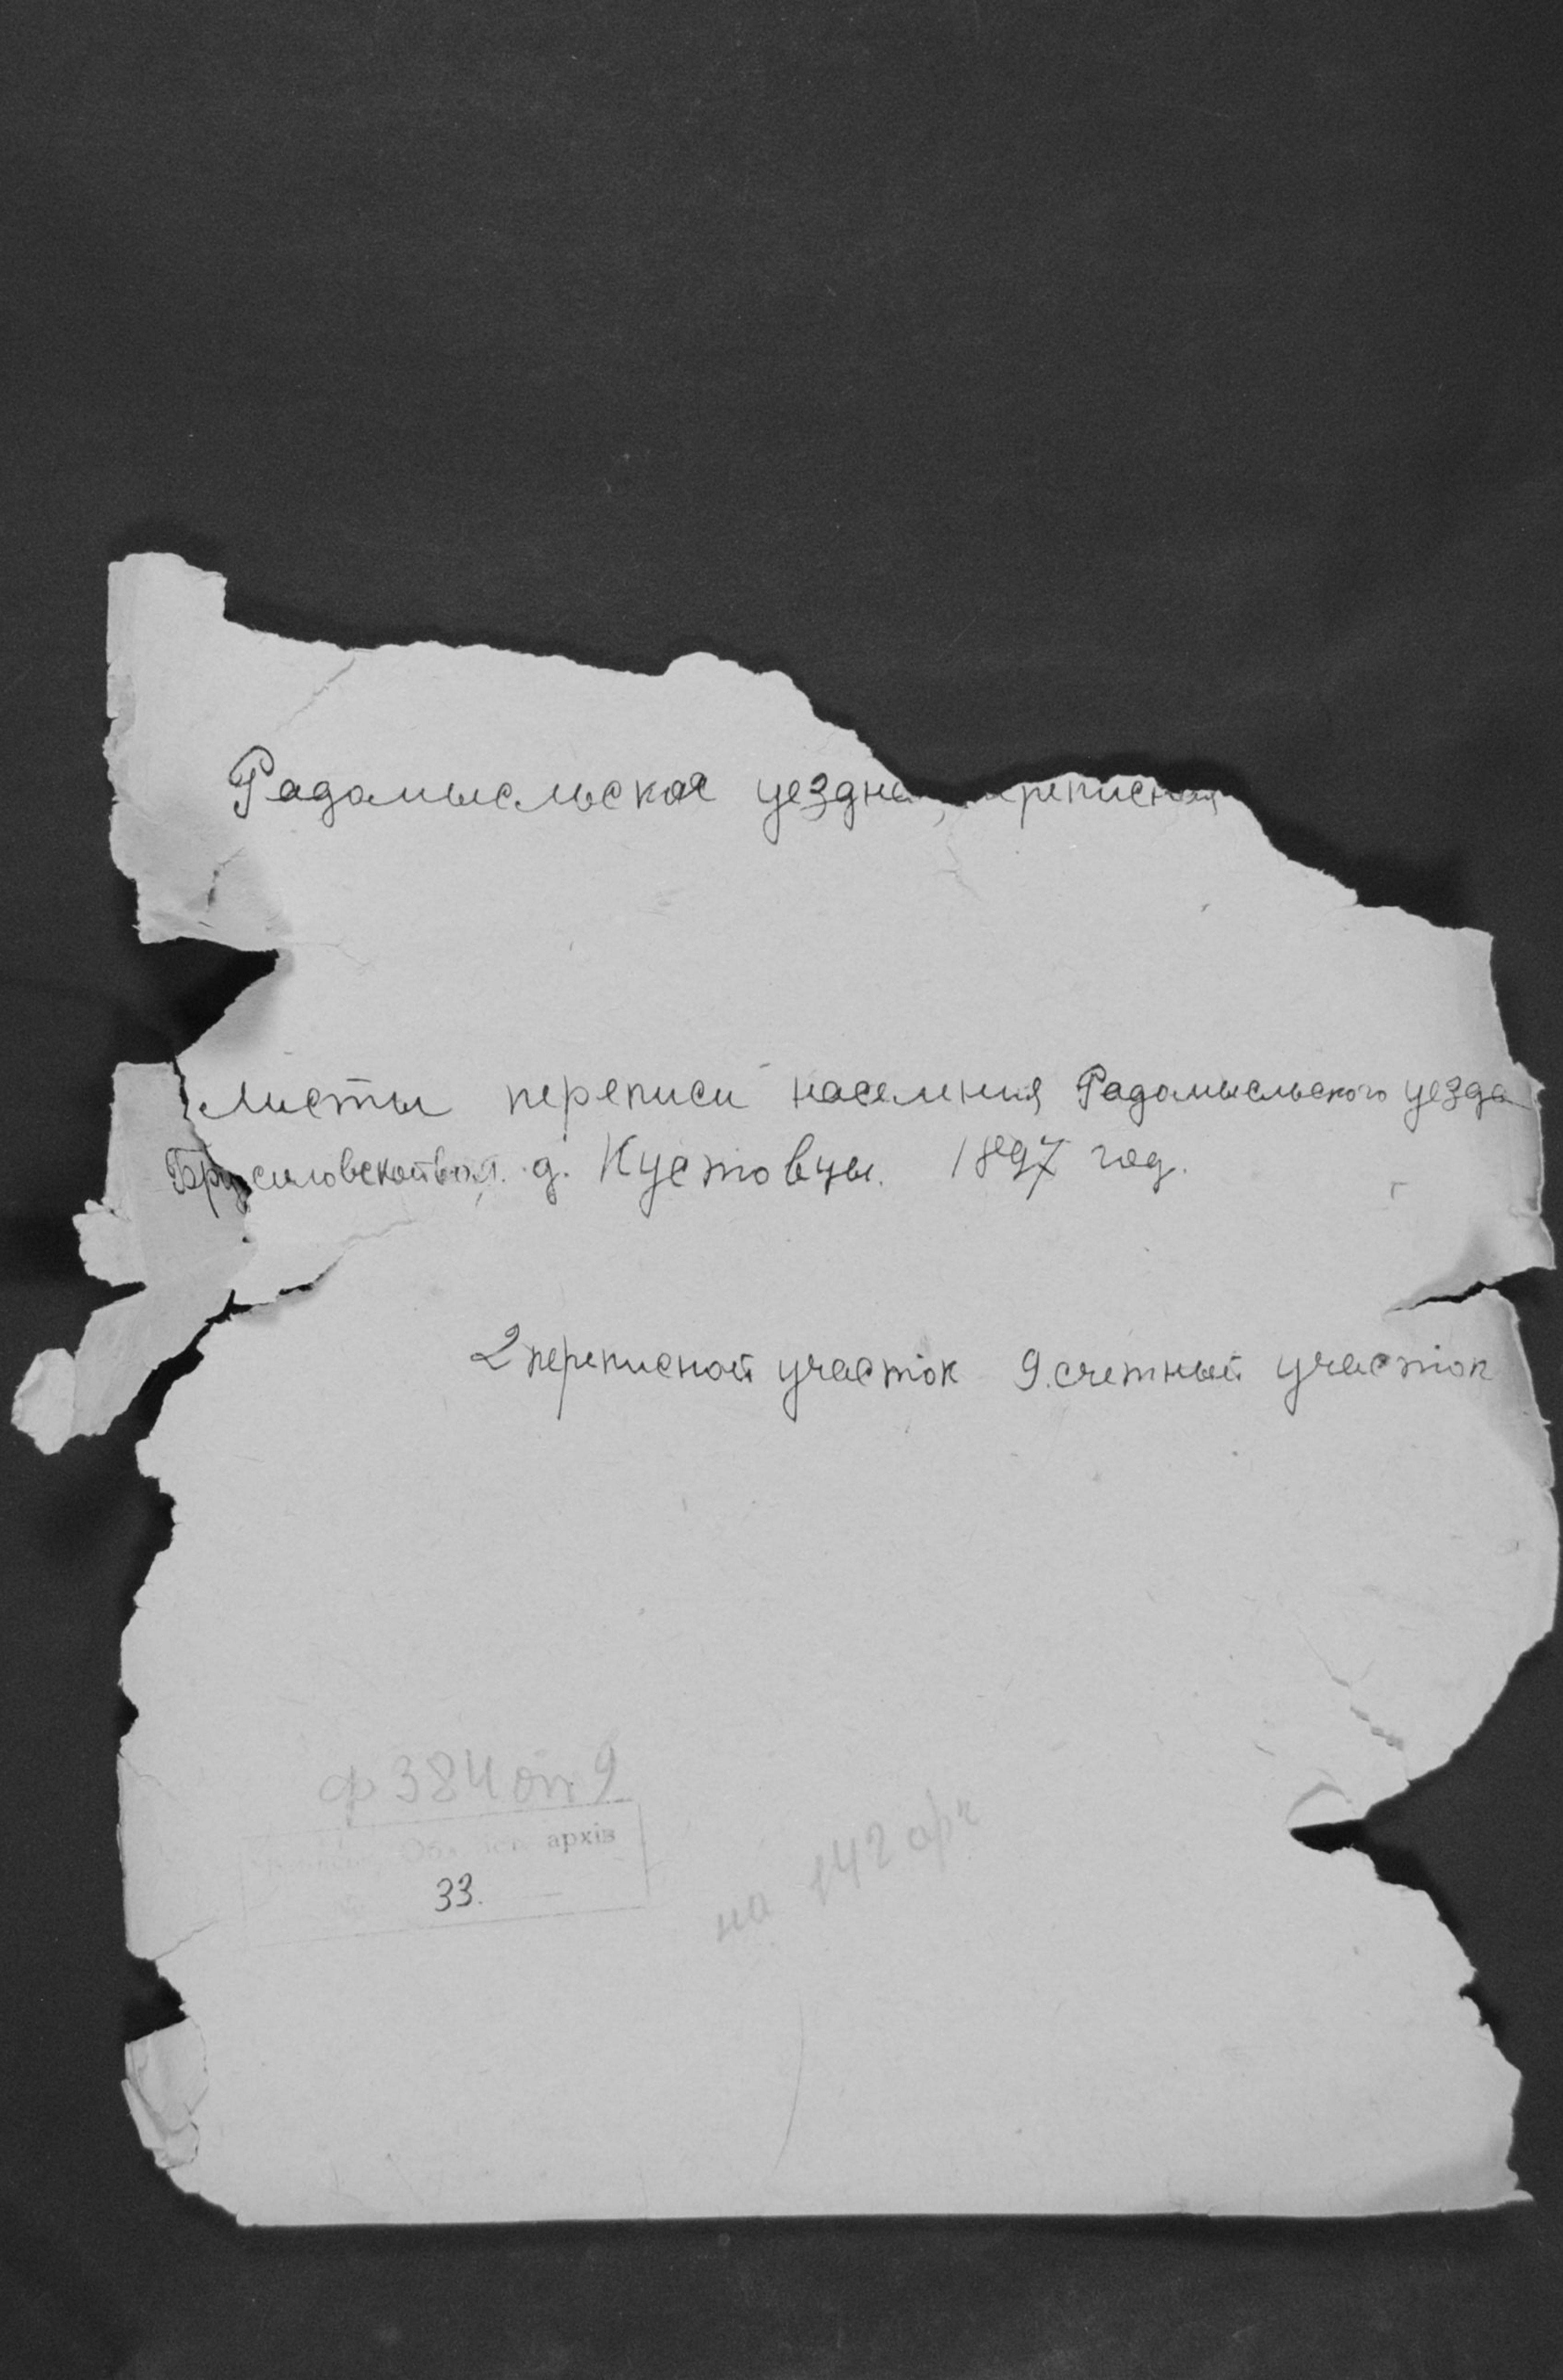 Радомысльская уездна переписная
Листы переписи населения Радомысльского уезда
Брусиловской вол. д. Кустовцы. 1897 год.
2 переписной участок 9. счетный участок
ф 384 оп 9
архів
33.
на 142 арк